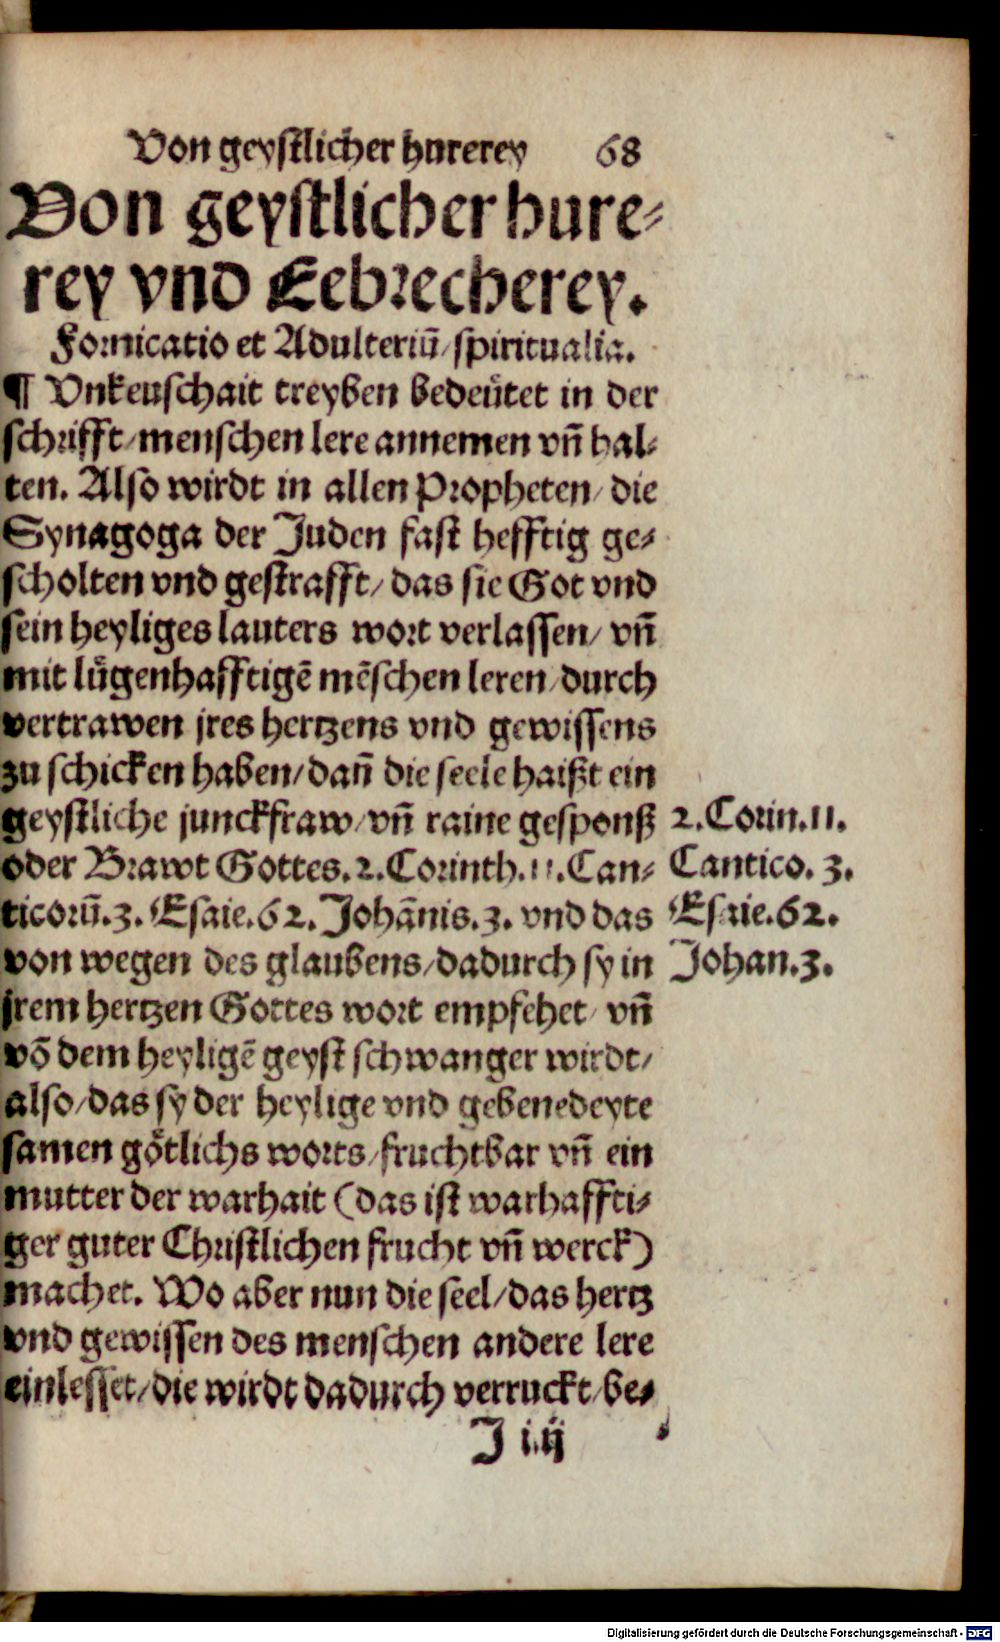 Von geystlicher hurerey 68
Von geystlicher hure⸗
rey vnd Eebrecherey.
Fornicatio et Adulteriū/ spiritualia.
¶ Vnkeuschait treyben bedeütet in der
schrifft/ menschen lere annemen vñ hal⸗
ten. Also wirdt in allen Propheten/ die
Synagoga der Juden fast hefftig ge⸗
scholten vnd gestrafft/ das sie Got vnd
sein heyliges lauters wort verlassen/ vñ
mit lůgenhafftigē mēschen leren/ durch
vertrawen jres hertzens vnd gewissens
zu schicken haben/ dañ die seele haißt ein
geystliche junckfraw/ vñ raine gesponß
2. Corin. 11.
oder Brawt Gottes. 2. Corinth. 11. Can⸗
Cantico. 3.
ticorū. 3. Esaie. 62. Johānis. 3. vnd das
Esaie. 62.
von wegen des glaubens/ dadurch sy in
Johan. 3.
jrem hertzen Gottes wort empfehet/ vñ
vō dem heyligē geyst schwanger wirdt/
also/ das sy der heylige vnd gebenedeyte
samen götlichs worts/ fruchtbar vñ ein
mutter der warhait (das ist warhaffti⸗
ger guter Christlichen frucht vñ werck)
machet. Wo aber nun die seel/ das hertz
vnd gewissen des menschen andere lere
einlesset/ die wirdt dadurch verruckt/ be⸗
J iiij
Digitalisierung gefördert durch die Deutsche Forschungsgemeinschaft - DFG